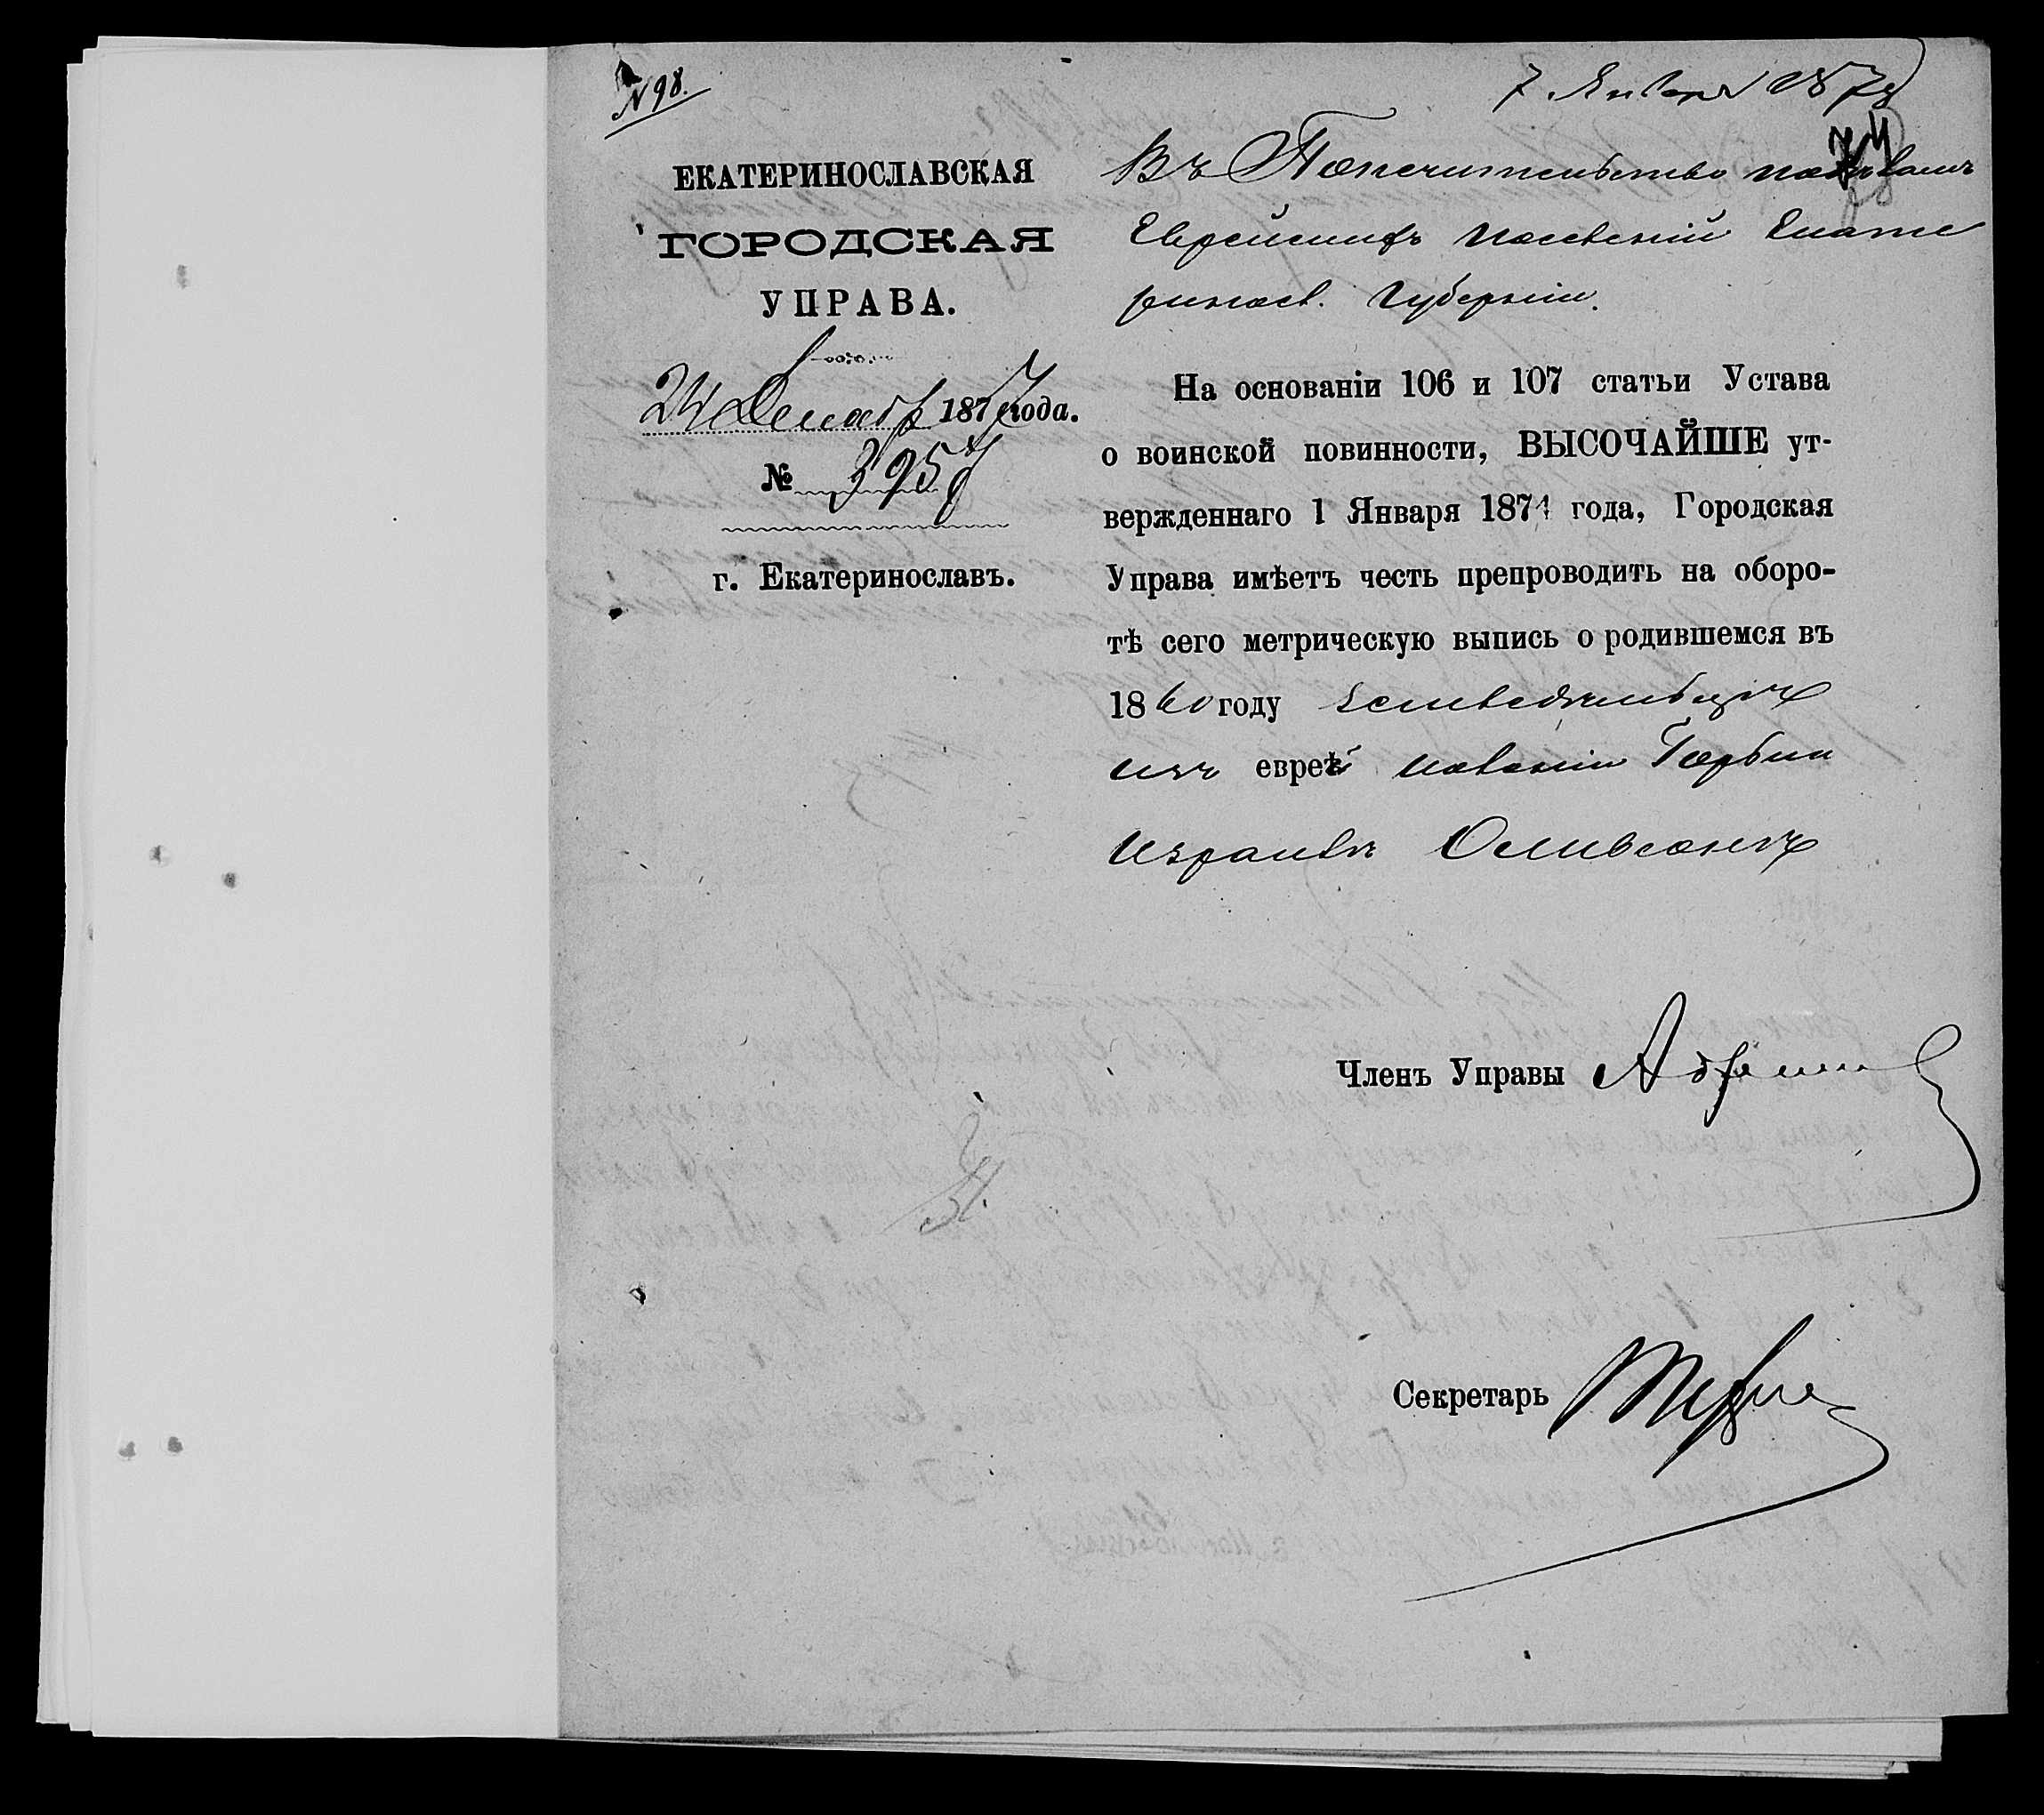 № 98.
7 Января 1878
ЕКАТЕРИНОСЛАВСКАЯ
ГОРОДСКАЯ
УПРАВА.
24 Декабр 1877 года.
№ 3957
г. Екатеринославъ.
Въ Попечительство
Еврейскихъ поселеній Екате
ринослав. Губерніи.
На основаніи 106 и 107 статьи Устава
о воинской повинности, ВЫСОЧАЙШЕ ут-
вержденнаго 1 Января 1874 года, Городская
Управа имѣетъ честь препроводить на оборо-
тѣ сего метрическую выпись о родившемся въ
1860 году земледѣльцѣ
изъ еврей колоніи Горькой
Израиль
Членъ Управы
Секретарь